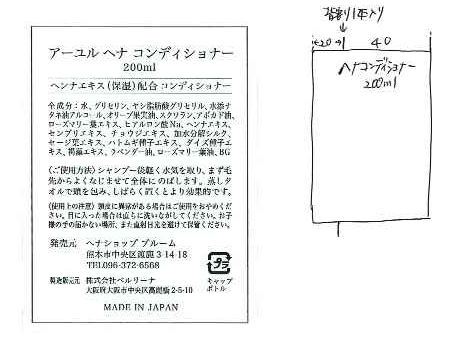 アーユル ヘナ コンディショナー
200ml
ヘンナエキス（保湿）配合 コンディショナー
全成分：水、グリセリン、ヤシ脂肪酸グリセリル、水添ナ
タネ油アルコール、オリーブ果実油、スクワラン、アボカド油、
ローズマリー葉エキス、ヒアルロン酸Na、ヘンナエキス、
センブリエキス、チョウジエキス、加水分解シルク、
セージ葉エキス、ハトムギ種子エキス、ダイズ種子エ
キス、褐藻エキス、ラベンダー油、ローズマリー葉油、BG
〈ご使用方法〉シャンプー後軽く水気を取り、まず毛
先からよくなじませて全体にのばします。蒸しタ
オルで頭を包み、しばらく置くとより効果的です。
（使用上の注意）頭皮に異常がある場合はご使用をおやめくだ
さい。目に入った場合は直ちに洗いながしてください。お子
様の手の届かない場所、また直射日光を避けて保管ください。
発売元 ヘナショップ ブルーム
熊本市中央区渡鹿 3-14-18
TEL096-372-6568
製造販売元 株式会社ベルリーナ
大阪府大阪市中央区高麗橋 2-5-10
プラ
キャップ
ボトル
MADE IN JAPAN
背割り1本入り
20
40
ヘナコンディショナー
200ml